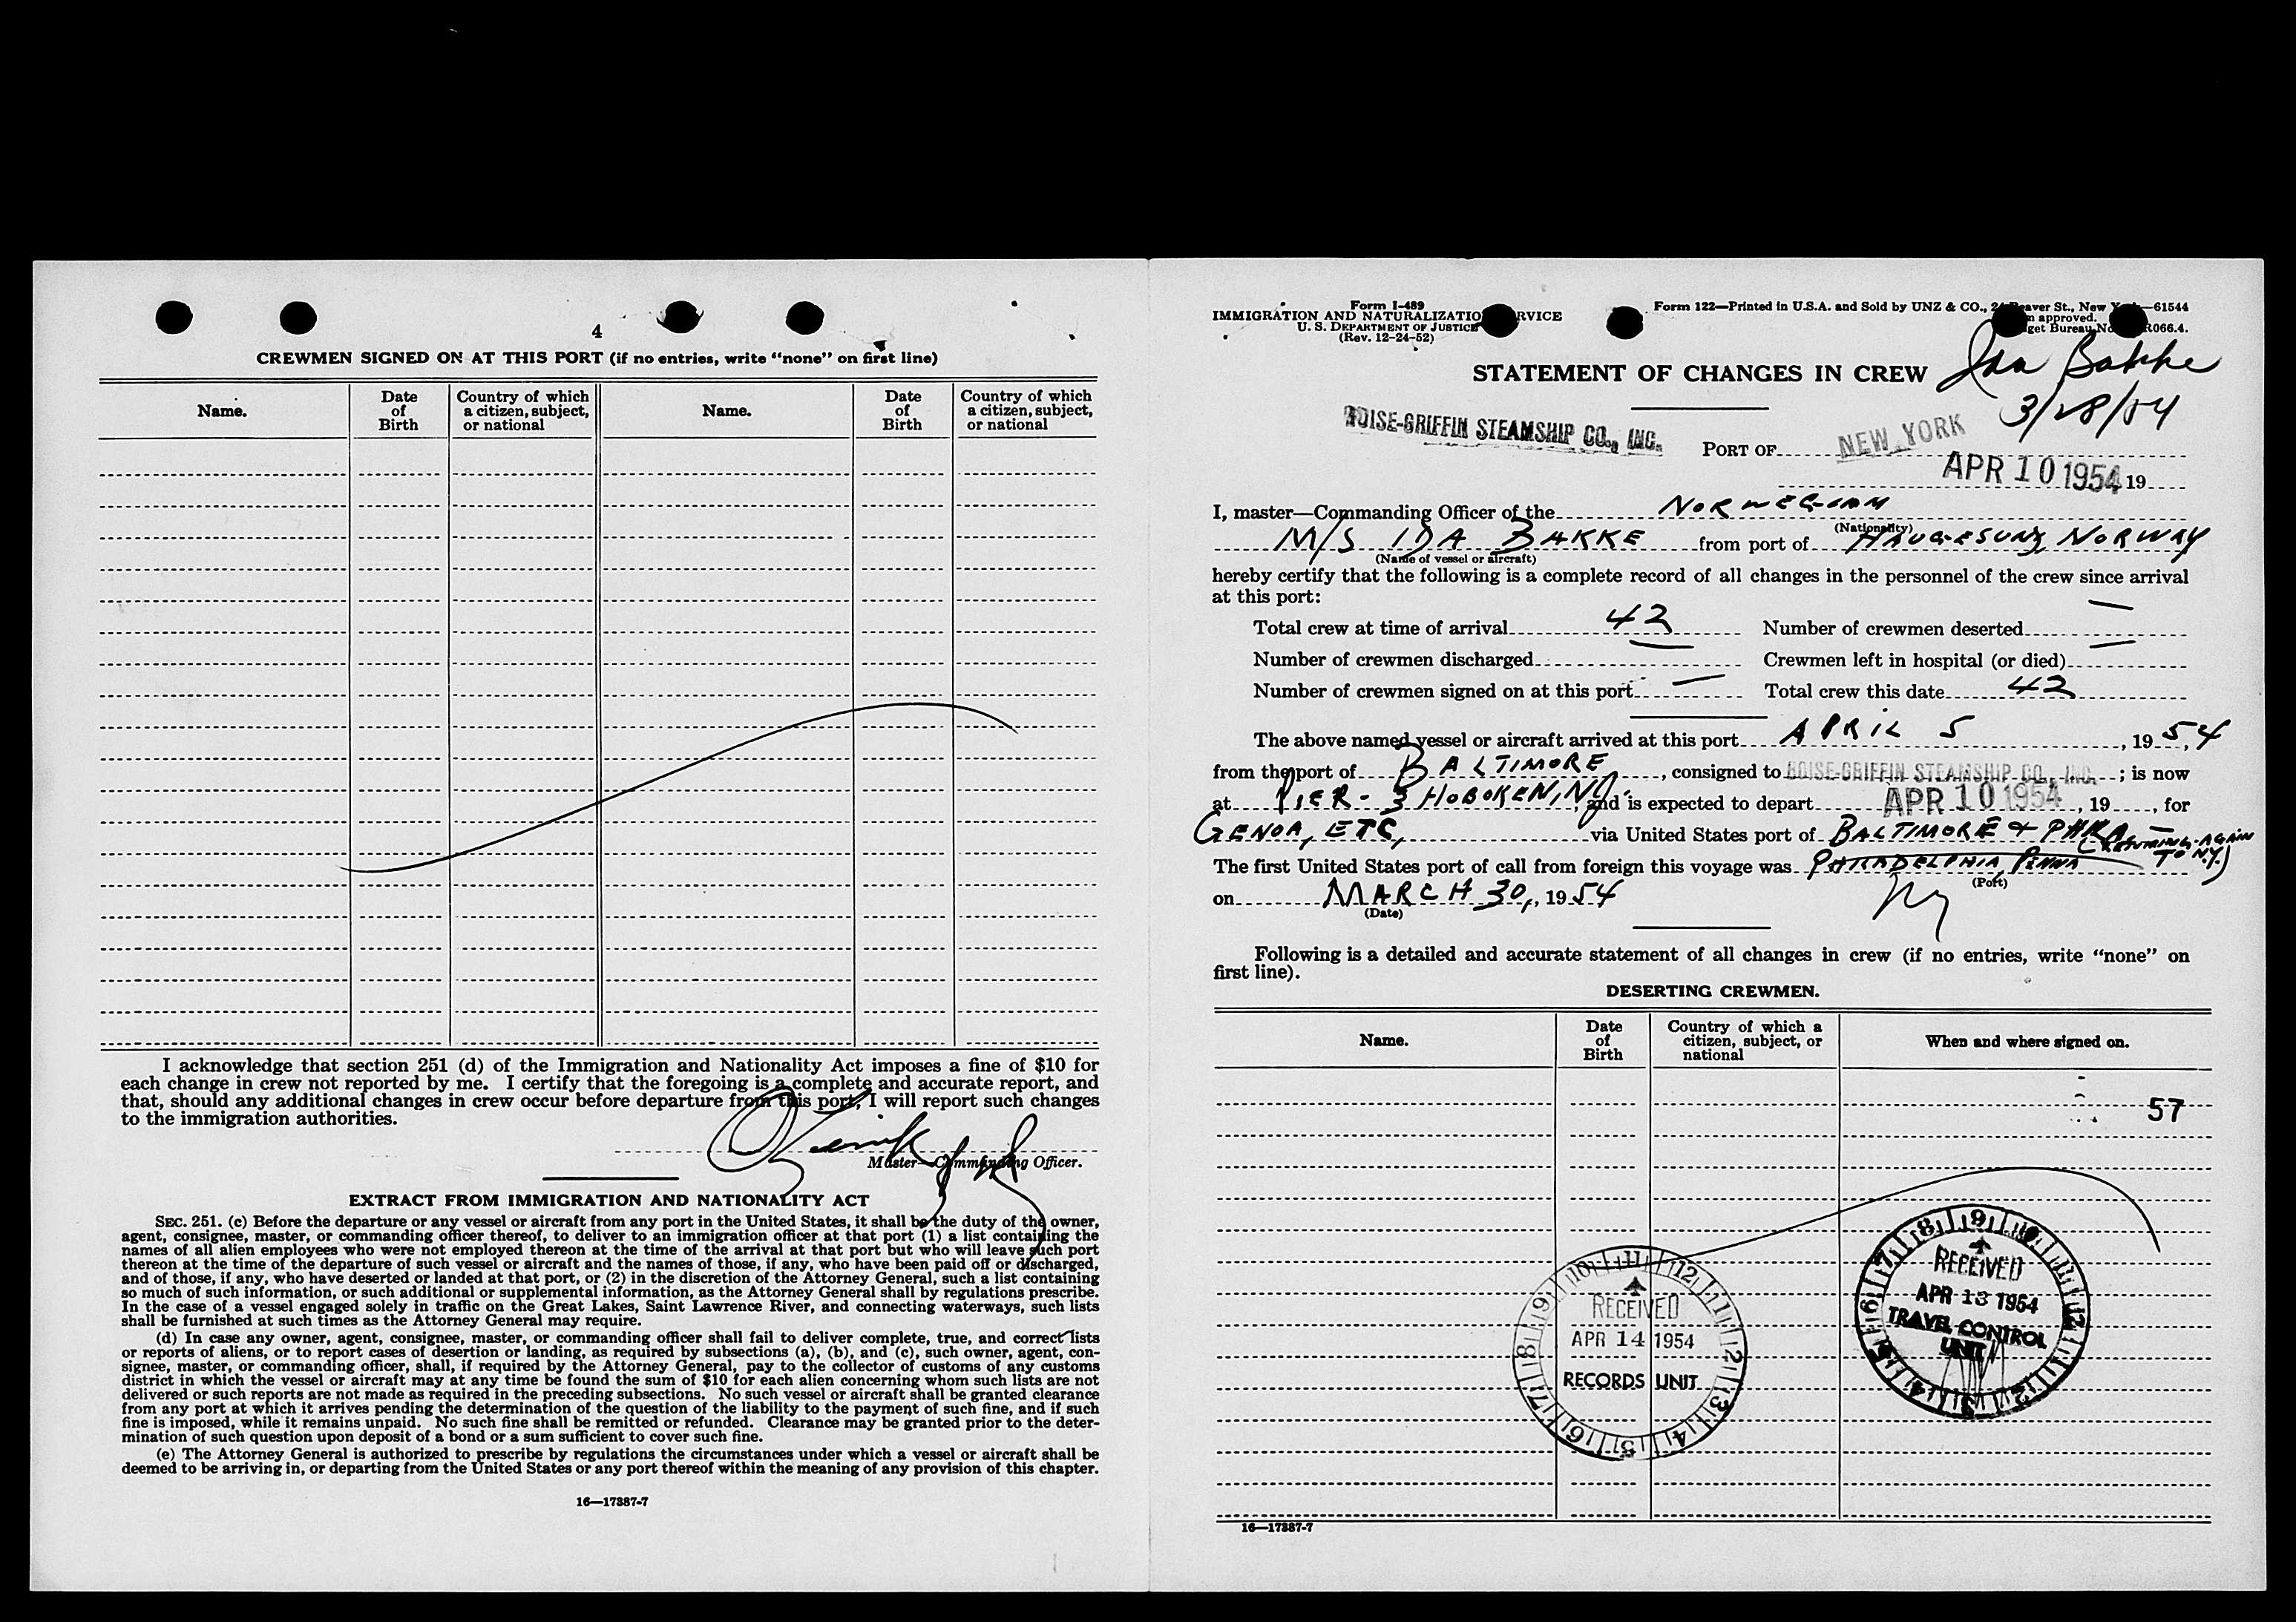 4
CREWMEN SIGNED ON AT THIS PORT (if no entries, write "none" on first line)
Name. Date of Birth Country of which a citizen, subject, or national Name. Date of Birth Country of which a citizen, subject, or national
I acknowledge that section 251 (d) of the Immigration and Nationality Act imposes a fine of $10 for
each change in crew not reported by me. I certify that the foregoing is a complete and accurate report, and
that, should any additional changes in crew occur before departure from this port, I will report such changes
to the immigration authorities.
Master—Commanding Officer.
EXTRACT FROM IMMIGRATION AND NATIONALITY ACT
SEC. 251. (c) Before the departure or any vessel or aircraft from any port in the United States, it shall be the duty of the owner,
agent, consignee, master, or commanding officer thereof, to deliver to an immigration officer at that port (1) a list containing the
names of all alien employees who were not employed thereon at the time of the arrival at that port but who will leave such port
thereon at the time of the departure of such vessel or aircraft and the names of those, if any, who have been paid off or discharged,
and of those, if any, who have deserted or landed at that port, or (2) in the discretion of the Attorney General, such a list containing
so much of such information, or such additional or supplemental information, as the Attorney General shall by regulations prescribe.
In the case of a vessel engaged solely in traffic on the Great Lakes, Saint Lawrence River, and connecting waterways, such lists
shall be furnished at such times as the Attorney General may require.
(d) In case any owner, agent, consignee, master, or commanding officer shall fail to deliver complete, true, and correct lists
or reports of aliens, or to report cases of desertion or landing, as required by subsections (a), (b), and (c), such owner, agent, con-
signee, master, or commanding officer, shall, if required by the Attorney General, pay to the collector of customs of any customs
district in which the vessel or aircraft may at any time be found the sum of $10 for each alien concerning whom such lists are not
delivered or such reports are not made as required in the preceding subsections. No such vessel or aircraft shall be granted clearance
from any port at which it arrives pending the determination of the question of the liability to the payment of such fine, and if such
fine is imposed, while it remains unpaid. No such fine shall be remitted or refunded. Clearance may be granted prior to the deter-
mination of such question upon deposit of a bond or a sum sufficient to cover such fine.
(e) The Attorney General is authorized to prescribe by regulations the circumstances under which a vessel or aircraft shall be
deemed to be arriving in, or departing from the United States or any port thereof within the meaning of any provision of this chapter.
16—17387-7
Form I-489
IMMIGRATION AND NATURALIZATIO RVICE
U. S. DEPARTMENT OF JUSTICE
(Rev. 12-24-52)
Form 122—Printed in U.S.A. and Sold by UNZ & CO., 24 eaver St., New Y —61544
n approved.
get Bureau No. R066.4.
STATEMENT OF CHANGES IN CREW
Ida Bakke
3/28/54
BOISE-GRIFFIN STEAMSHIP CO., INC.
PORT OF NEW YORK
APR 10 1954 19
I, master—Commanding Officer of the NORWEGIAN
(Nationality)
M/S IDA BAKKE from port of HAUGESUND NORWAY
(Name of vessel or aircraft)
hereby certify that the following is a complete record of all changes in the personnel of the crew since arrival
at this port:
Total crew at time of arrival 42 Number of crewmen deserted —
Number of crewmen discharged — Crewmen left in hospital (or died) —
Number of crewmen signed on at this port — Total crew this date 42
The above named vessel or aircraft arrived at this port APRIL 5, 1954
from the port of BALTIMORE, consigned to BOISE-GRIFFIN STEAMSHIP CO., INC.; is now
at PIER-3 HOBOKEN, NJ. and is expected to depart APR 10 1954, 19, for
GENOA, ETC, via United States port of BALTIMORE + PHILA —
(RETURNING AGAIN TO N.Y.)
The first United States port of call from foreign this voyage was PHILADELPHIA, PENNA
(Port)
NY
on MARCH 30, 1954
(Date)
Following is a detailed and accurate statement of all changes in crew (if no entries, write "none" on
first line).
DESERTING CREWMEN.
Name. Date of Birth Country of which a citizen, subject, or national When and where signed on.
57
RECEIVED
APR 14 1954
RECORDS UNIT
RECEIVED
APR 13 1954
TRAVEL CONTROL
UNIT
16—17387-7